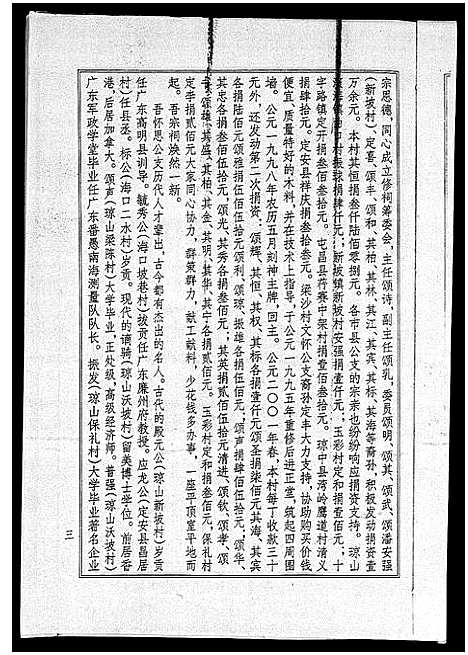 宗恩德，同心成立修祠筹委会，主任颂诗，副主任颂乳，委员颂明、颂其、颂武、颂潘安强
（新坡村）、定喜、颂丰、颂和、其柏、其林、其江、其宾、其标、其海等裔孙，积极发动捐资壹
万余元。本村其恒捐叁仟陆佰零捌元。各市县公支的宗亲也纷纷响应捐资支持。琼山
村振球捐肆仟元；新坡镇新坡村安强捐壹仟元；玉彩村定和捐壹佰元；十
字路镇定开捐叁佰叁拾元。屯昌县荷赛中架村捐壹佰叁拾元。琼中县湾岭鹰道村清义
捐肆拾元。定安县祥庆捐叁拾叁元。梁沙村文怀公裔孙定丰大力支持，协助购买价钱
便宜、质量特好的木料，并在技术上指导，于公元一九九五年重修后进正堂，筑起四周围
墙。公元一九九八年农历五月刻神主牌，回主。公元二○○一年冬，本村每丁收款三十
元外，还发动第二次捐资：颂辉、其恒、其权、其标各捐壹仟元颂圣捐柒佰元其海、其宾
各捐陆佰元颂雅捐伍佰伍拾元颂利、颂琼、振雄各捐伍佰元、颂声捐肆佰伍拾元、颂华、
其忠各捐叁佰伍拾元，颂光、其秀各捐叁佰元；其英捐贰佰伍拾元清进、颂钦、颂孝、颂
颂雄、其盛、其柏、其金、其明、其华、其宁各捐贰佰元。玉彩村定和捐叁佰元，保礼村
定李捐贰佰元大家同心协力，群策群力，献工献料，少花钱多办事，一座平顶室平地而
起。吾宗祠焕然一新。
吾怀恩公支历代人才辈出，古今都有杰出的名人。古代的殿元公（琼山新坡村）岁贡
任广东高明县训导。毓秀公（海口坡巷村）拔贡任广东廉州府教授。应龙公（定安县昌居
村）任县丞。标公（海口二水村）岁贡。现代的谓骑（琼山沃坡村）留美博士学位。前居香
港，后居加拿大。颂声（琼山梁陈村）大学毕业，正处级，高级经济师。昔强（琼山沃坡村）
广东军政学堂毕业任广东番愚南海测量队队长。振发（琼山保礼村）大学毕业著名企业
三